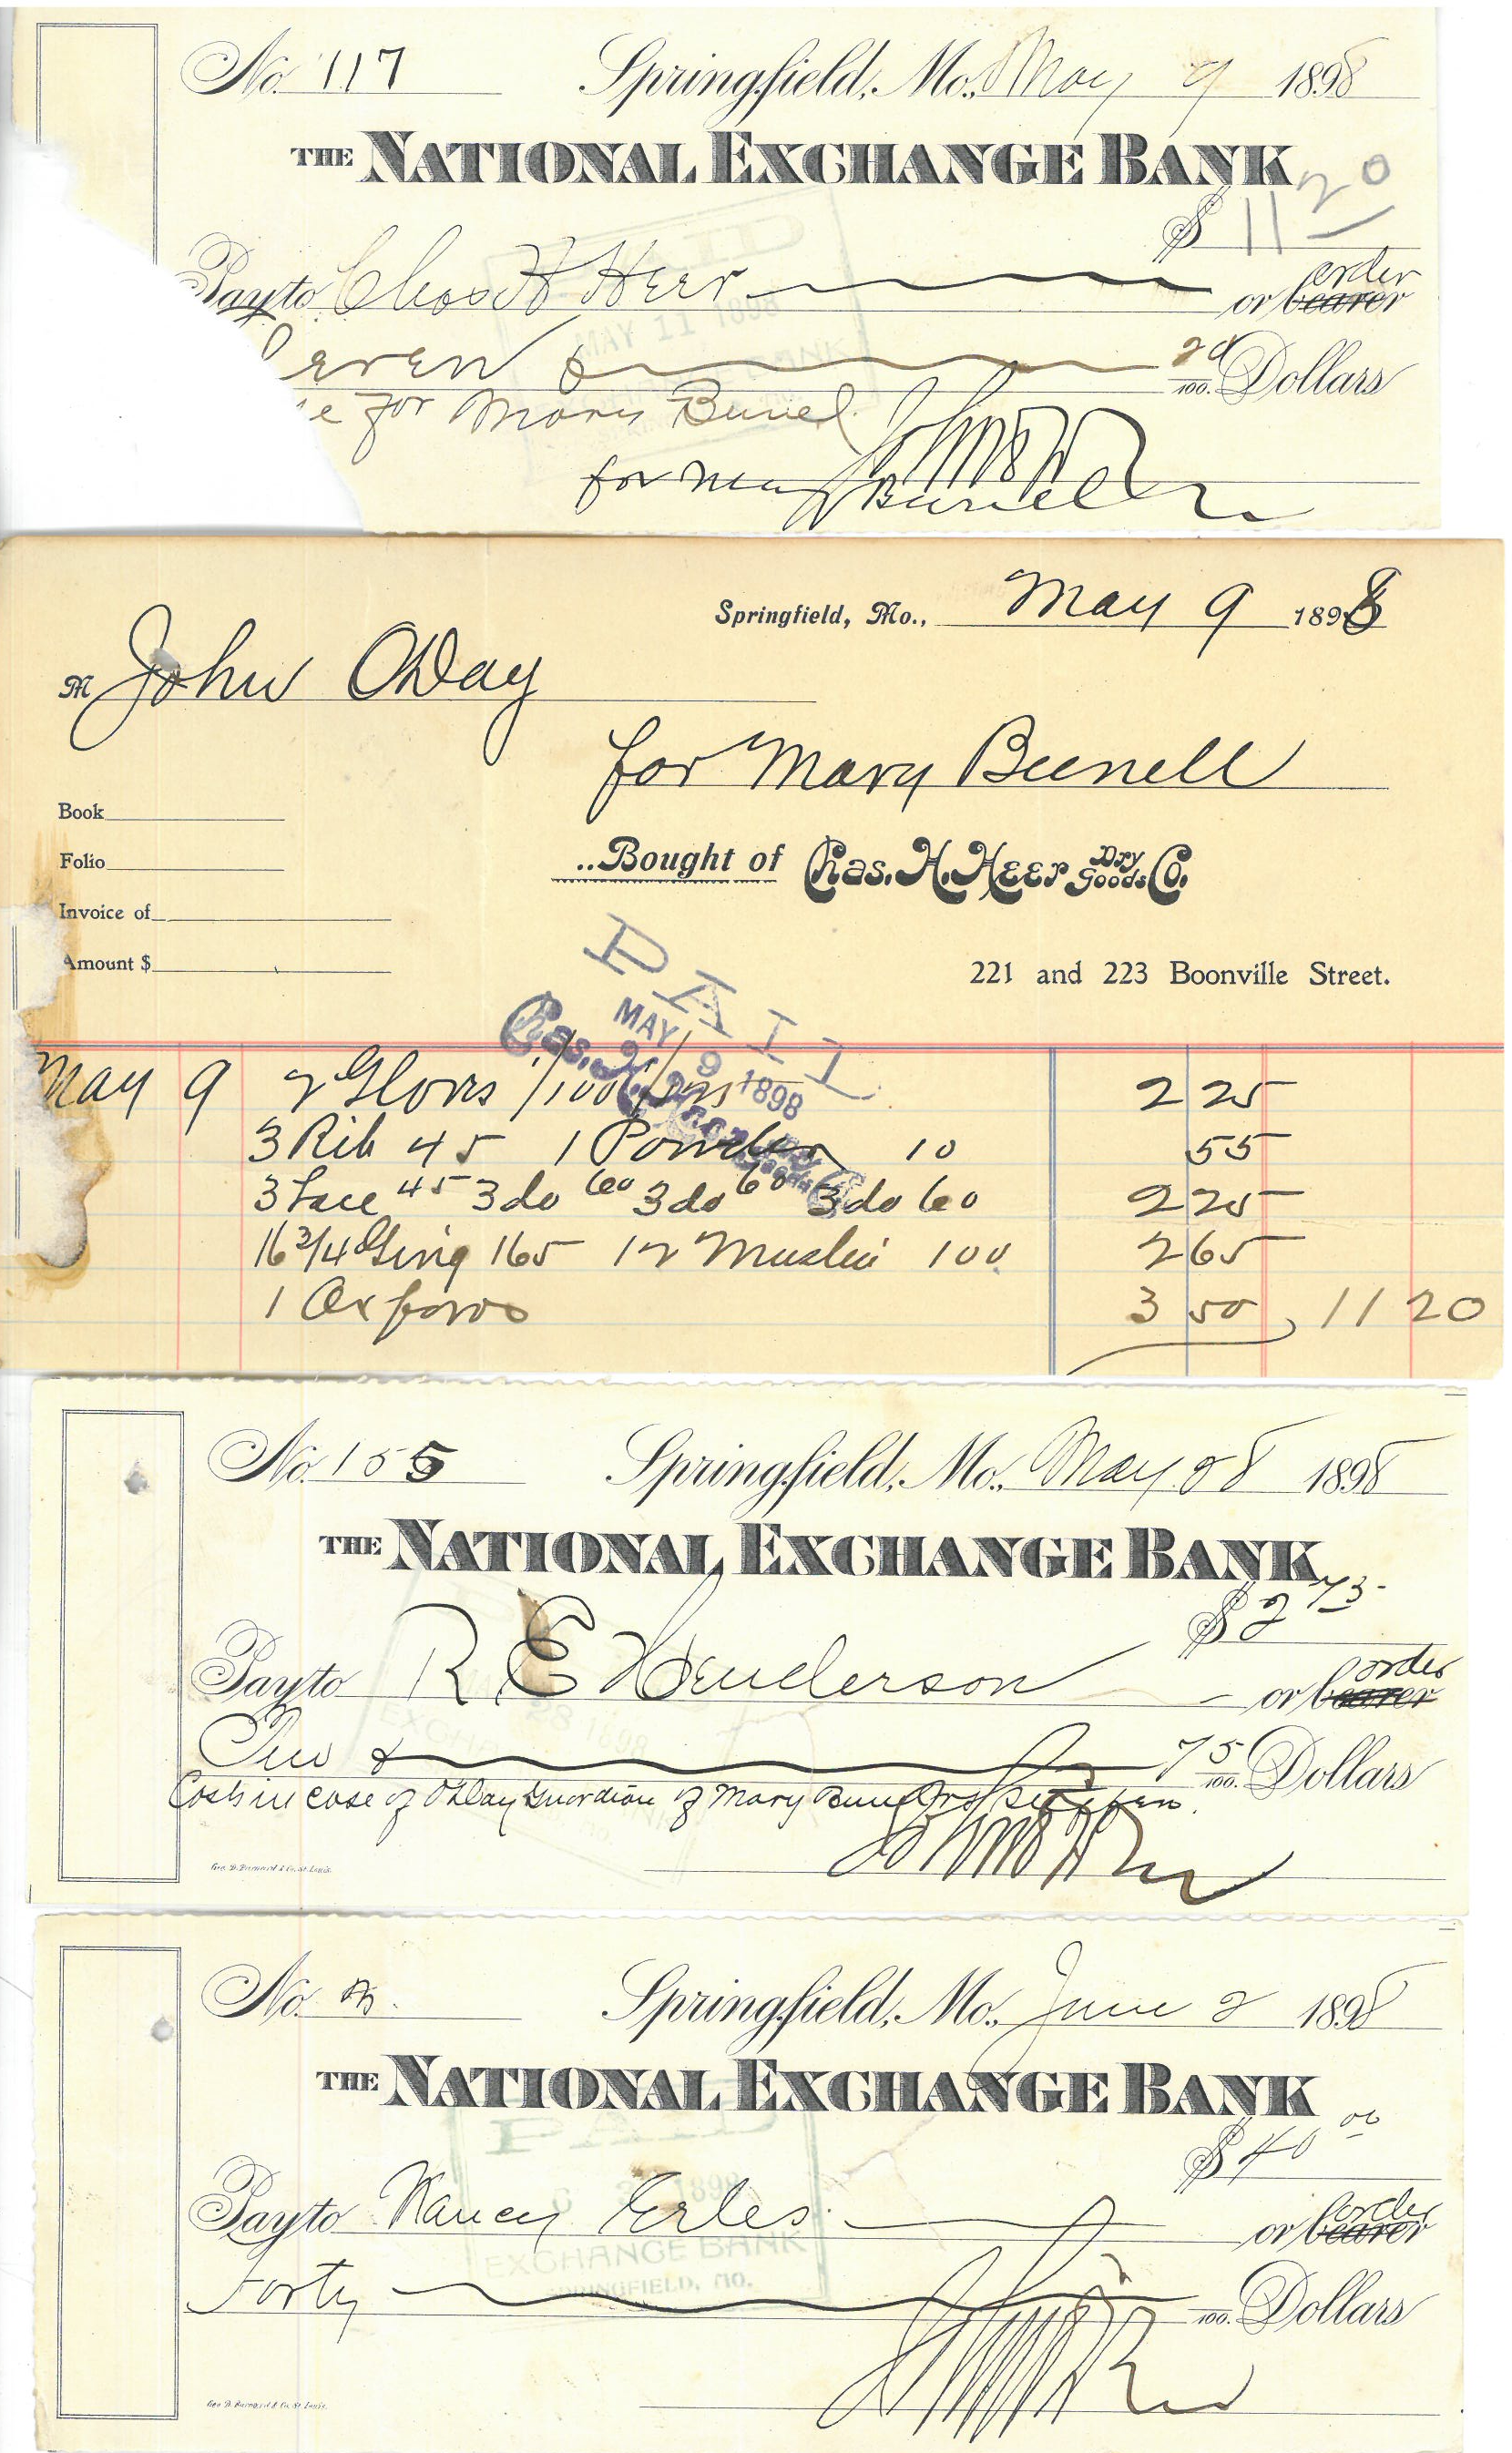 No. 117 Springfield, Mo., May 9 1898
THE NATIONAL EXCHANGE BANK
$ 11 20
Pay to Chas H Heer or bearer order
even & 20/100. Dollars
e for Mary Bunel
MAY 11 1898
for Mary Bunell
Springfield, Mo., May 9 1898
M John ODay
for Mary Bunell
Book
Folio
..Bought of Chas. H. Heer Dry Goods Co.
Invoice of
Amount $
221 and 223 Boonville Street.
PAID
MAY 9 1898
Chas. H. Heer Dry Goods Co.
May 9 2 Gloves 1/100 1/125 2 25
3 Rib 45 1 Powder 10 55
3 Lace 45 3 do 60 3 do 60 3 do 60 2 25
16 3/4 Ging 165 12 Muslin 100 2 65
1 Oxfords 3 50 11 20
No. 155 Springfield, Mo., May 28 1898
THE NATIONAL EXCHANGE BANK
$ 2 75
Pay to R E Henderson or bearer order
Two & 75/100. Dollars
Costs in case of ODay Guardian of Mary
Geo. D. Barnard & Co. St. Louis.
No. Springfield, Mo., June 2 1898
THE NATIONAL EXCHANGE BANK
$ 40 00
Pay to Nancy Erles or bearer order
EXCHANGE BANK
SPRINGFIELD, MO.
Forty 100. Dollars
Geo. D. Barnard & Co. St. Louis.